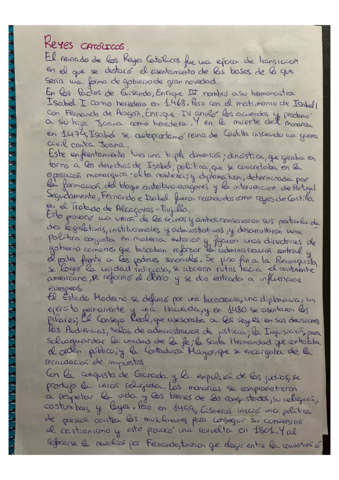 REYES CATÓLICOS.
El reinado de los Reyes Católicos fue una época de transición
en el que se destacó el asentamiento de las bases de lo que
sería una forma de gobierno de gran novedad.
En los Pactos de Guisando, Enrique IV nombró a su hermanastra
Isabel I como heredera en 1468. Pero con el matrimonio de Isabel I
con Fernando de Aragón, Enrique IV anuló los acuerdos y proclamó
a su hija Juana como heredera. Y en la muerte del monarca
en 1474, Isabel se autoproclamó reina de Castilla iniciando una guerra
civil contra Juana.
Este enfrentamiento tuvo una triple dimensión; dinástica, que giraba en
torno a los derechos de Isabel; política, que se concretaba en la
oposición monarquía-alta nobleza; y diplomática, determinada por
la formación del bloque castellano-aragonés y la intervención de Portugal.
Seguidamente, Fernando e Isabel fueron reconocidos como reyes de Castilla
en el tratado de Alcáçovas-Trujillo.
Esto provocó la unión de los reinos y ambos conservaron sus particularida-
des legislativas, institucionales y administrativas y desarrollaron una
política conjunta en materia exterior y fijaron unas directrices de
gobierno comunes que buscaban reforzar la administración central y
el poder frente a los poderes señoriales. Se puso fin a la Reconquista,
se logró la unidad religiosa, se abrieron rutas hacia el continente
americano, se reformó el clero y se dio entrada a influencias
europeas.
El Estado Moderno se definía por una burocracia, una diplomacia, un
ejército permanente y una Hacienda, y en 1480 se asentaron los
pilares; El Consejo Real, que asesoraba a los reyes en sus decisiones,
las Audiencias, salas de administración de justicia; la Inquisición, para
salvaguardar la unidad de la fe; la Santa Hermandad que controlaba
el orden público; y la Contaduría Mayor, que se encargaba de la
recaudación de impuestos.
Con la conquista de Granada y la expulsión de los judíos, se
produjo la unión religiosa. Los monarcas se comprometieron
a respetar la vida y los bienes de los conquistados, su religión,
costumbres y leyes. Pero en 1499, Cisneros inició una política
de presión contra los musulmanes para conseguir su conversión
al cristianismo y esto provocó una revuelta en 1501. Y al
sofocarse la revuelta por Fernando, tuvieron que elegir entre la conversión o